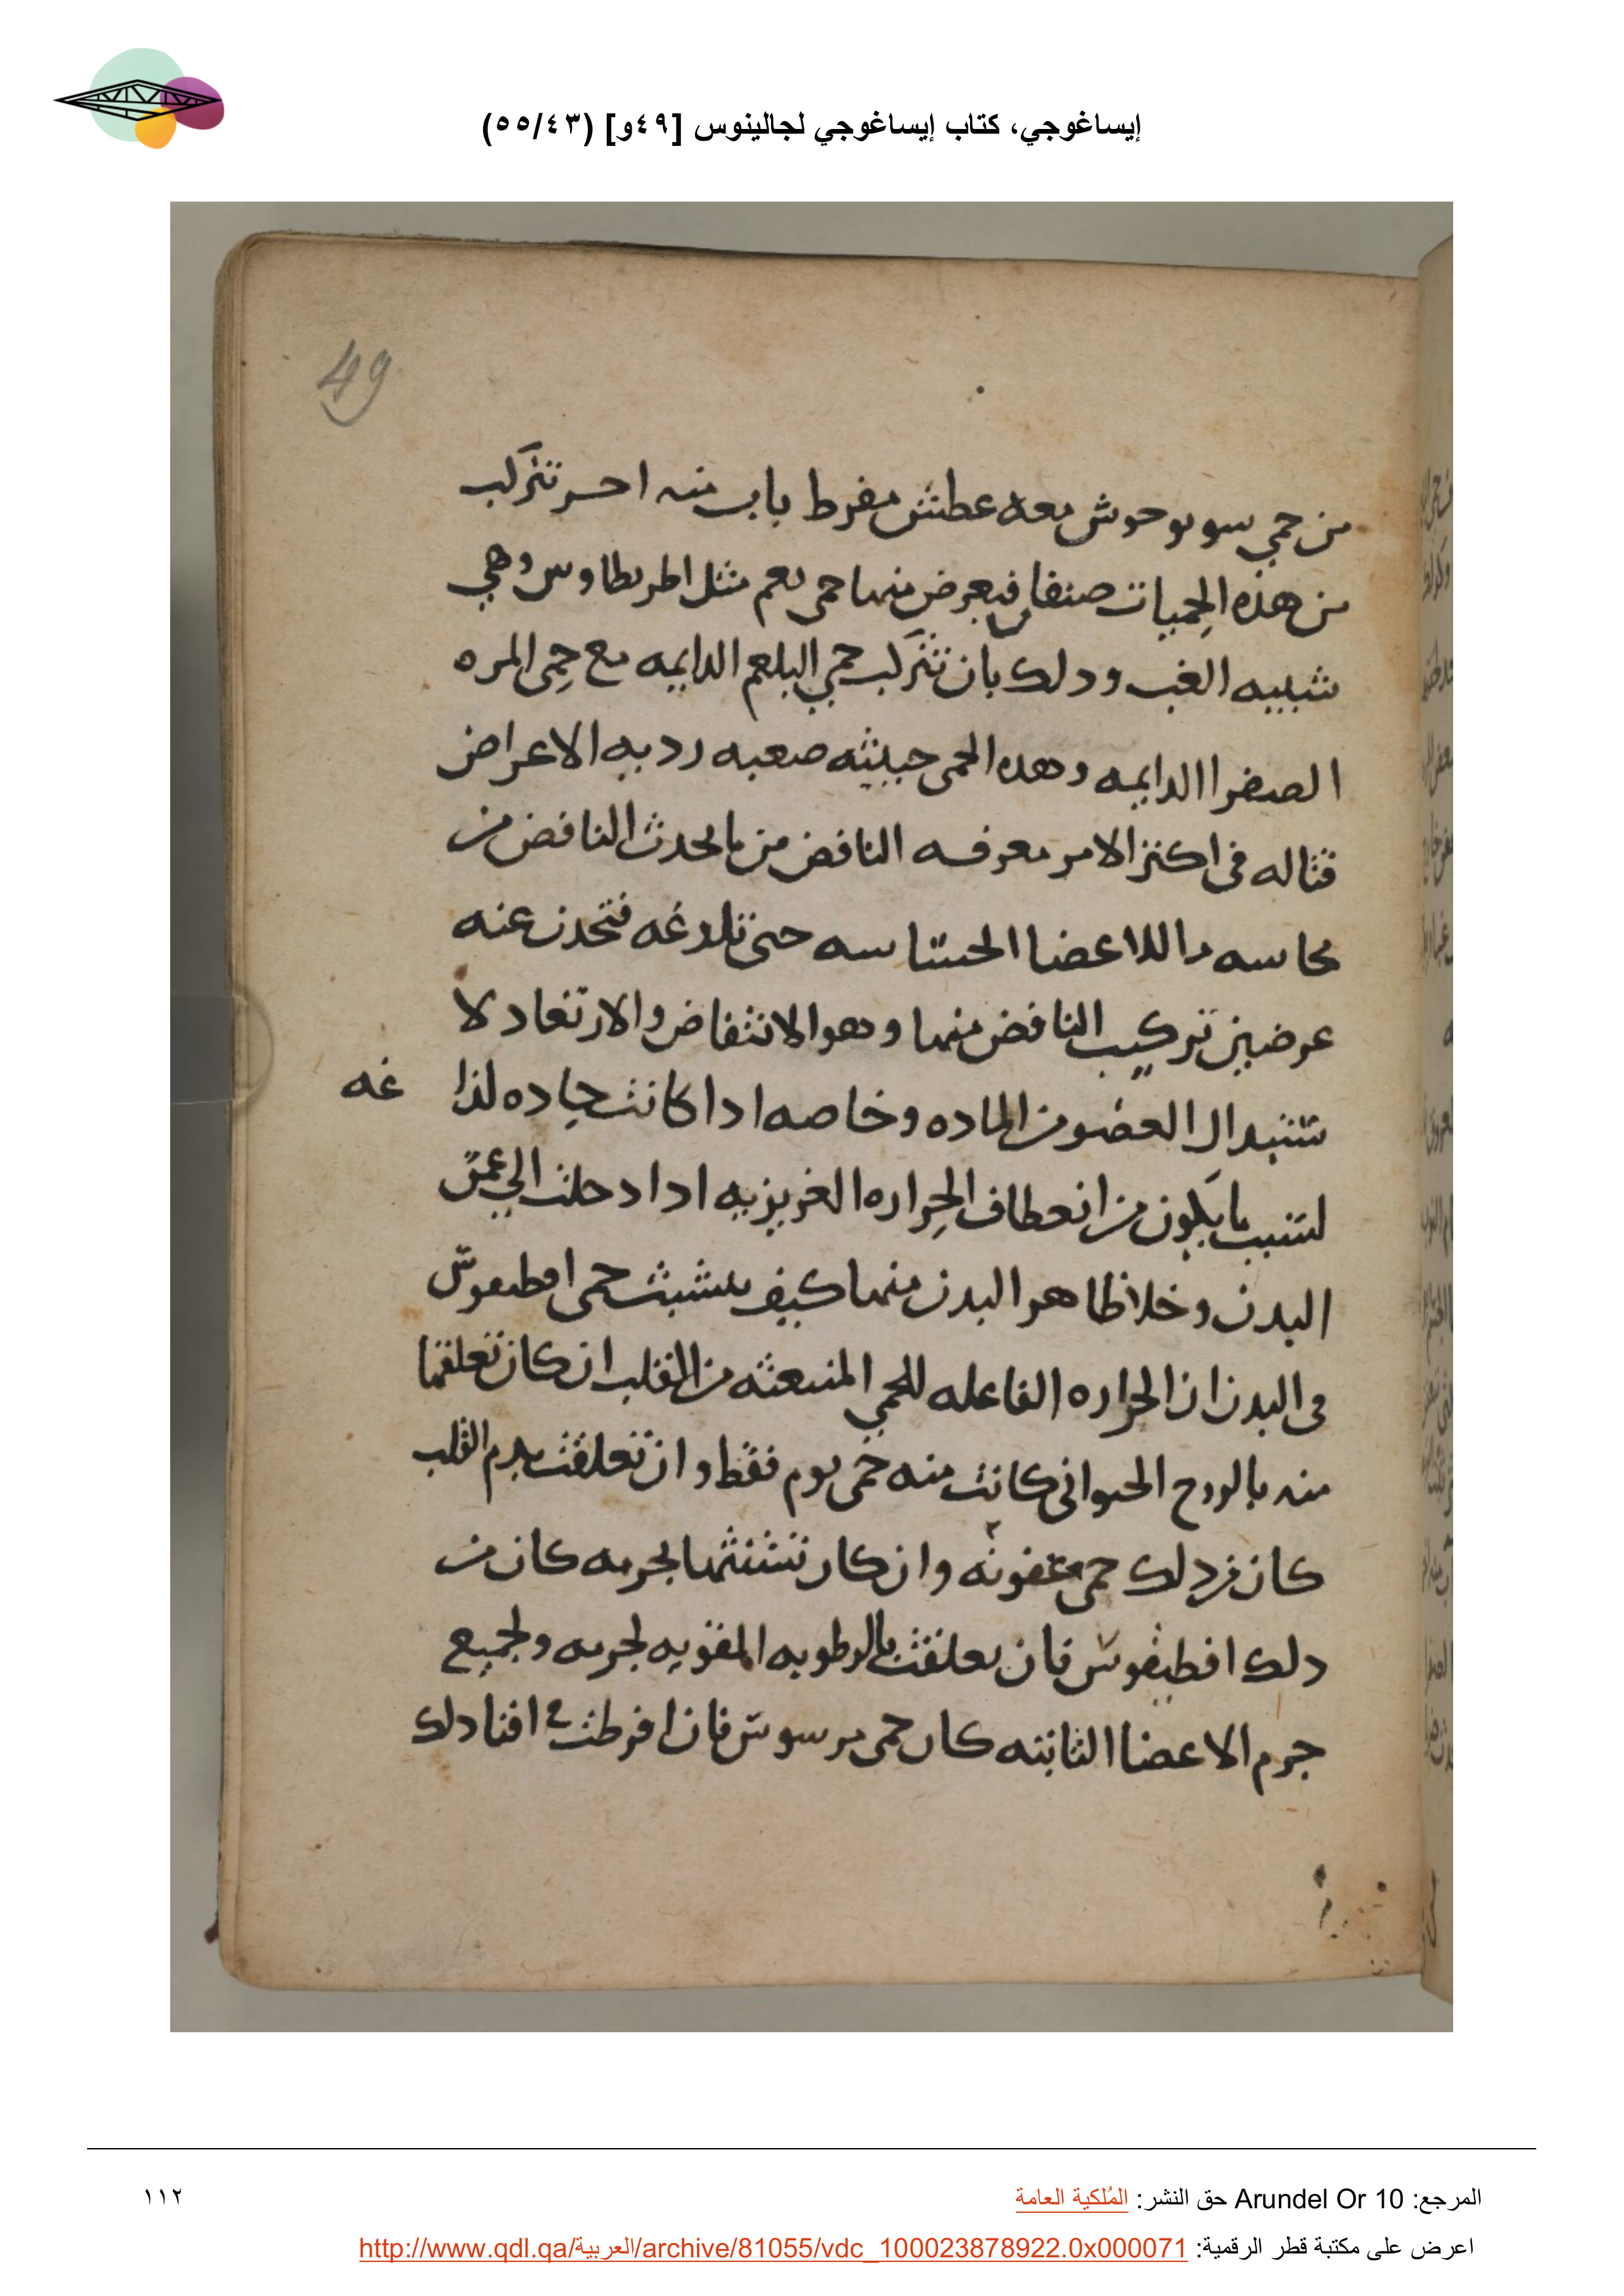 إيساغوجي، كتاب إيساغوجي لجالينوس [٤٩و] (٥٥/٤٣)
49
من حمي سوىوحوش معه عطش مفرط باب منه احر تتركب
من هذه الحميات صنفان فيعرض منهما حمى تعم مثل اطريطاوس وهي
شبيبه الغب ودلك بان تتركب حمي البلغم الدايمه مع حمى المره
الصفرا الدايمه وهده الحمى خبيثه صعبه رديه الاعراض
قتاله في اكثر الامر معرفه النافض من ما يحدث النافض من
للاعضا الحساسه حتى تلدغه فتحدث عنه
عرضين تركيب النافض منهما وهو الانتفاض والارتعاد لا
العضو من الماده وخاصه ادا كانت حاده لذا غه
لسبب ما يكون من انعطاف الحراره الغريزيه ادا دخلت الي عمق
البدن وخلا ظاهر البدن منهما كيف تتشبث حمى اقطيقوس
في البدن ان الحراره الفاعله للحمي المنبعثه من القلب ان كان تعلقها
منه بالروح الحيواني كانت منه حمى يوم فقط وان تعلقت بدم القلب
كان من دلك حمى عفونه وان كان تشبثها بجرمه كان من
دلك اقطيقوس فان تعلقت بالرطوبه المقويه لجرمه ولجميع
جرم الاعضا الثابته كان حمى مرسوس فان افرطت في افنا دلك
المرجع: Arundel Or 10 حق النشر: المُلكية العامة
١١٢
اعرض على مكتبة قطر الرقمية: http://www.qdl.qa/العربية/archive/81055/vdc_100023878922.0x000071